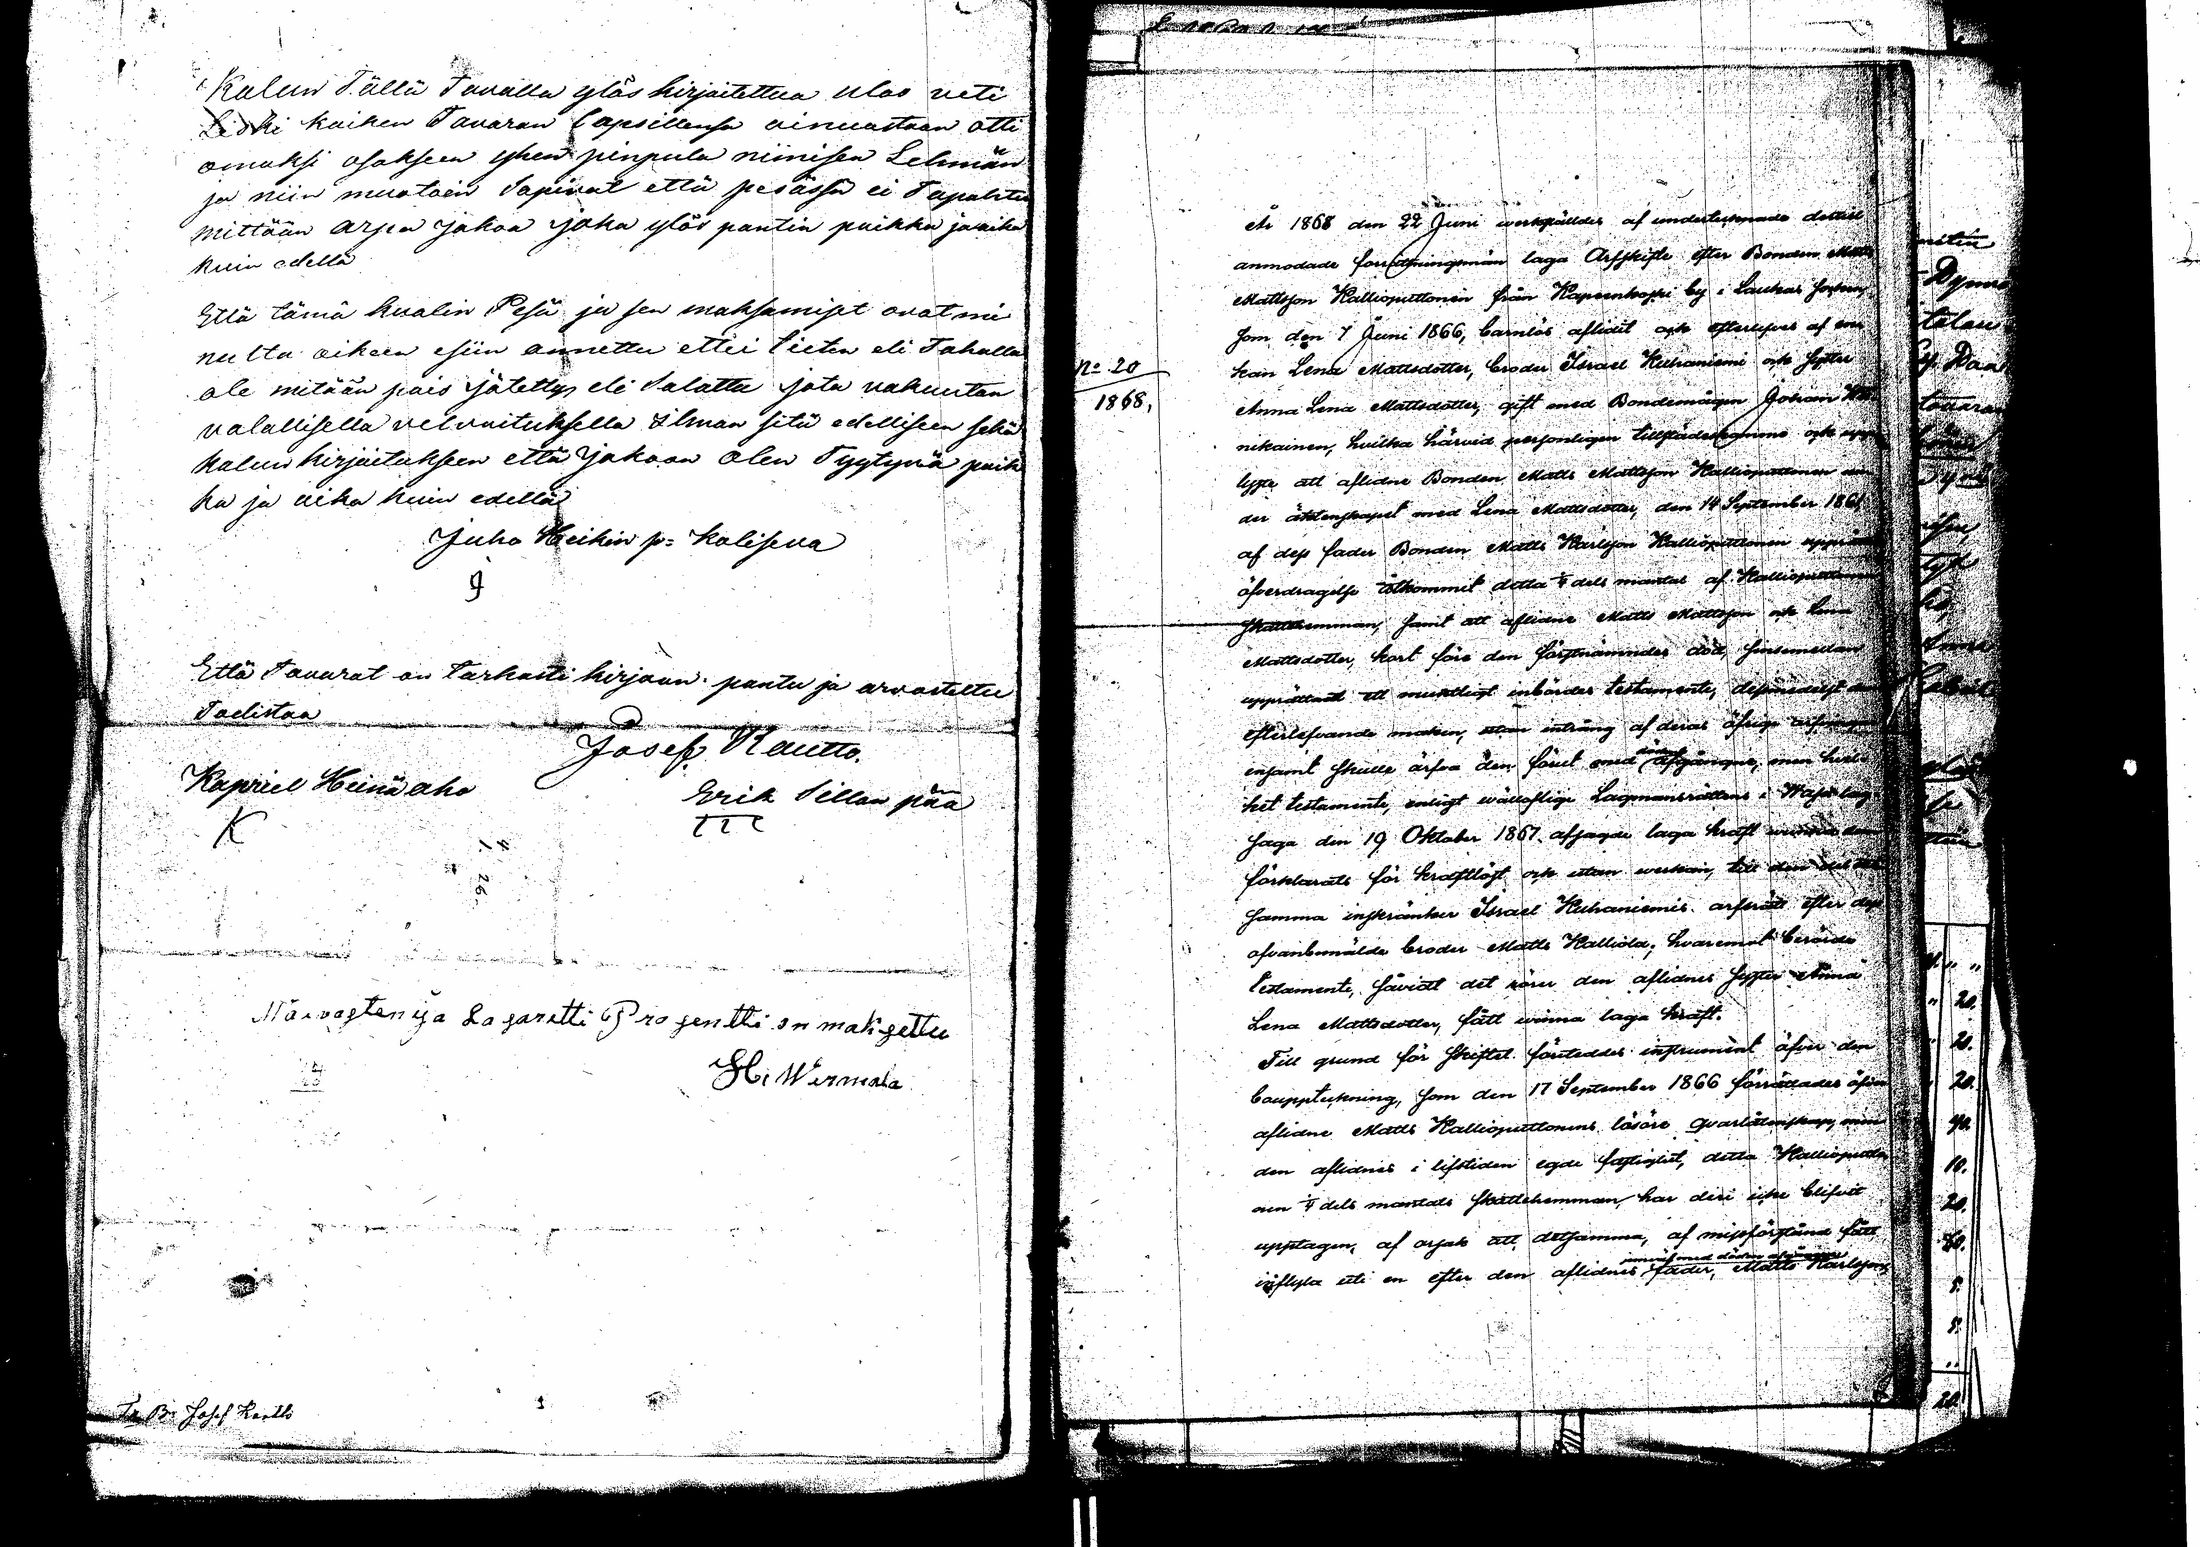 Kalun Tällä Tavalla ylös kirjoitettua ulos veti
Leski kaiken Tavaran lapsillensa ainuastaan otti
omaksi osakseen yhen pinpula niinisen Lehmän
ja niin muotoin Sopivat että pesässä ei Tapahtu
mittään arpa jakoa joka ylös pantin paikka ja aika
kuin edellä
Että tämä kualin Pesä ja sen maksamiset ovat mi
nulta oikeen esiin annettu ettei tieten eli Tahalla
ole mitään pois jätetty eli Salattu jota vakuutan
valallisella velvoituksella Ilman sitä edelliseen sekä
kalun kirjoitukseen että Jakoon olen Tyytyvä paik
ka ja aika kuin edellä
Juho Heikin p: Koliseva
Että Tavarat on tarkasti kirjaan pantu ja arvosteltu
Todistaa
Josef Rautto.
Kapriel Heinäaho
Erik Sillanpää
K
Näivaosten ja Lasaretti Prosentti on maksettu
H. Wermala
Tr Br Josef Rautto
No 20
1868,
År 1868 den 22 Juni werkställdes af undertecknade dertill
anmodade förrättningsmän laga Arfskifte efter Bonden Matts
Mattsson Kallioputtonen från Kapeenkoski by i Laukas Socken,
som den 7 Juni 1866, barnlös aflidit och efterlefves af en
kan Lena Mattsdotter, broder Israel Kuhaniemi och syster
Anna Lena Mattsdotter, gift med Bondemågen Johan
nikainen, hvilka härvid personligen tillstädeskommo och upp
lyste att aflidne Bonden Matts Mattsson Kallioputtonen un
der äktenskapet med Lena Mattsdotter, den 14 September 1861
af dess fader Bonden Matts Karlsson Kallioputtonen upprättad
öfverdragelse åtkommit detta 1/4 dels mantal af Kallioputtonen
skattehemman, samt att aflidne Matts Mattsson och Lena
Mattsdotter, kort före den förstnämndes död, sinsemedan
upprättadt ett muntligt inbördes testamente, derigenom den
efterlefvande maken, utan intrång af deras öfriga arfvingar
ensamt skulle ärfva den förut med döden afgångne, men hvil
ket testamente, enligt wällofliga Lagmansrättens i Wasa lag
saga den 19 Oktober 1867 afsagde laga kraft wunna dom
förklarats för kraftlöst och utan werkan, till den del det
samma inskränker Israel Kuhaniemis arfsrätt efter dess
ofvanbemälde broder Matts Kalliola, hvaremot berörde
testamente, såvidt det rörer den aflidnes syster Anna
Lena Mattsdotter, fått winna laga kraft.
Till grund för skiftet företeddes instrument öfver den
bouppteckning, som den 17 September 1866 förrättades öfver
aflidne Matts Kallioputtonens lösöre qvarlåtenskap, men
den aflidnes i lifstiden egde fastighet, detta Kallioputto
nen 1/4 dels mantals skattehemman, har deri icke blifvit
upptagen, af orsak att detsamma, af missförstånd fått
inflyta uti en efter den aflidnes jemväl med döden afgångne fader, Matts Karlsson